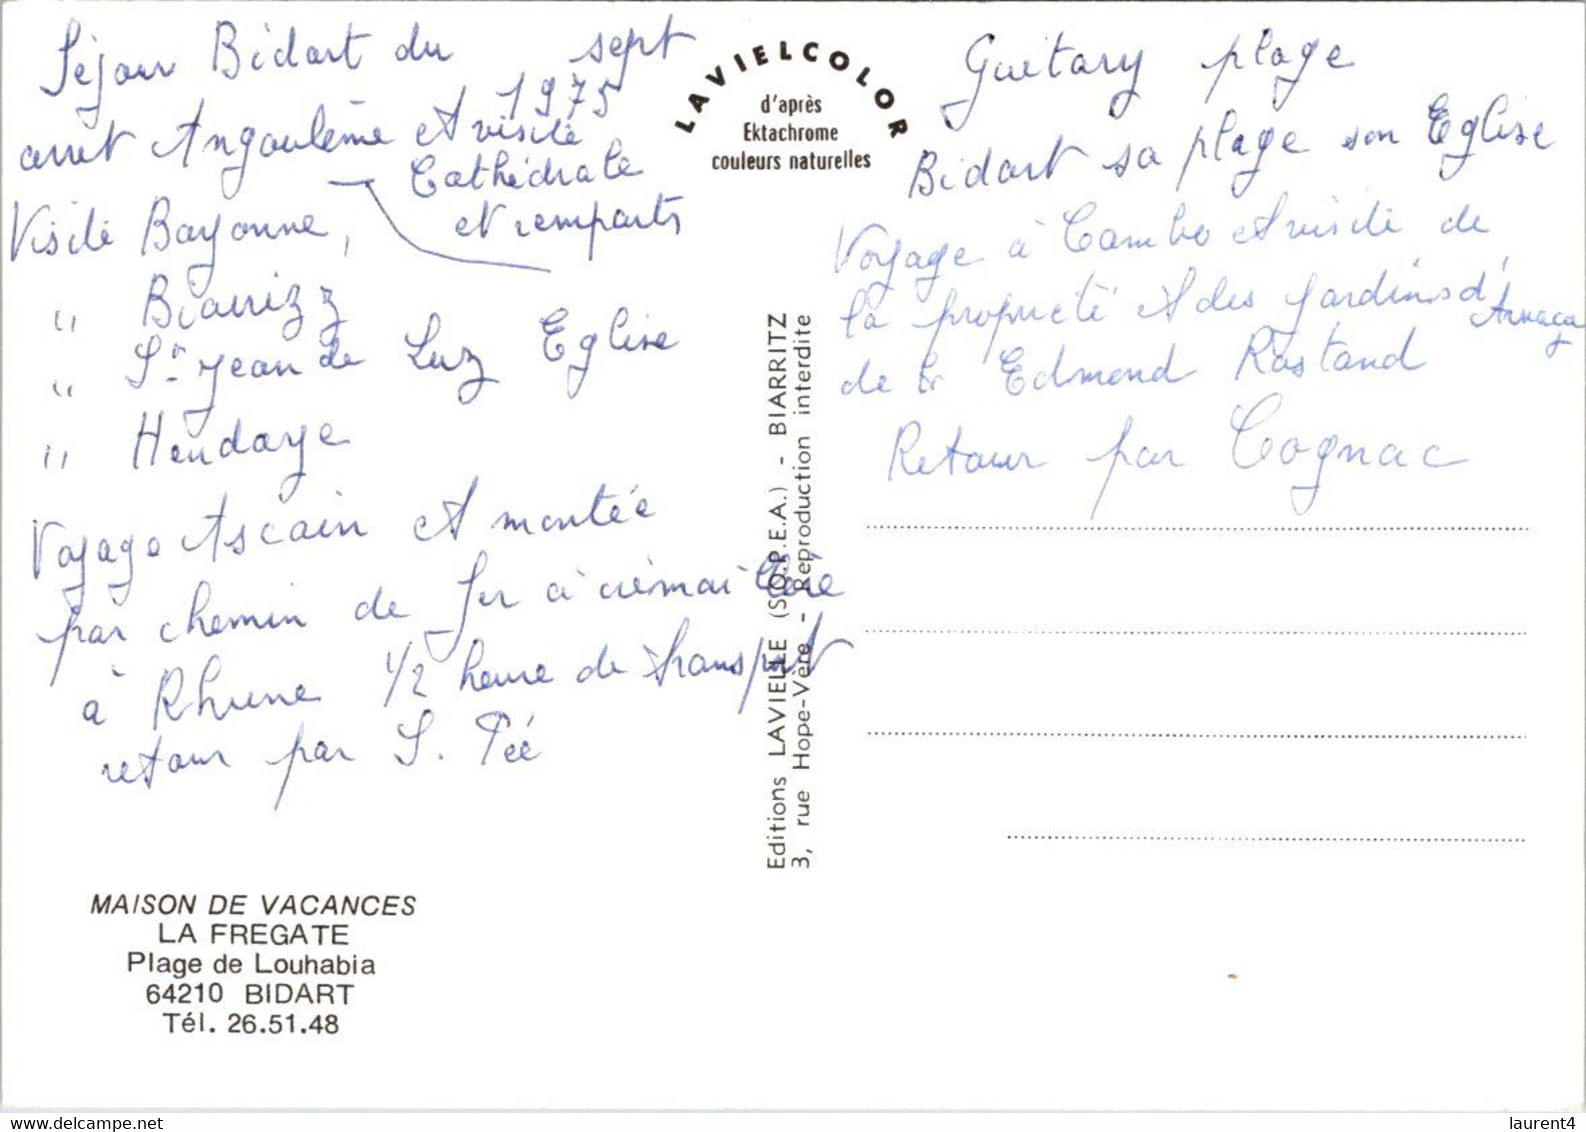 Séjour Bidart du sept
1975
arret Angoulème et visite
Cathédrale
et remparts
Visite Bayonne,
" Biarrizz
" St Jean de Luz Eglise
" Hendaye
Voyage Ascain et montée
par chemin de fer à crémaillère
à Rhune 1/2 heure de transport
retour par S. Pée
MAISON DE VACANCES
LA FREGATE
Plage de Louhabia
64210 BIDART
Tél. 26.51.48
LAVIELCOLOR
d'après
Ektachrome
couleurs naturelles
Editions LAVIELLE (S.O.P.E.A.) - BIARRITZ
3, rue Hope-Vère - Reproduction interdite
Guétary plage
Bidart sa plage son Eglise
Voyage à Cambo et visite de
la propriété et des jardins d'Arnaga
de Edmond Rostand
Retour par Cognac
laurent4